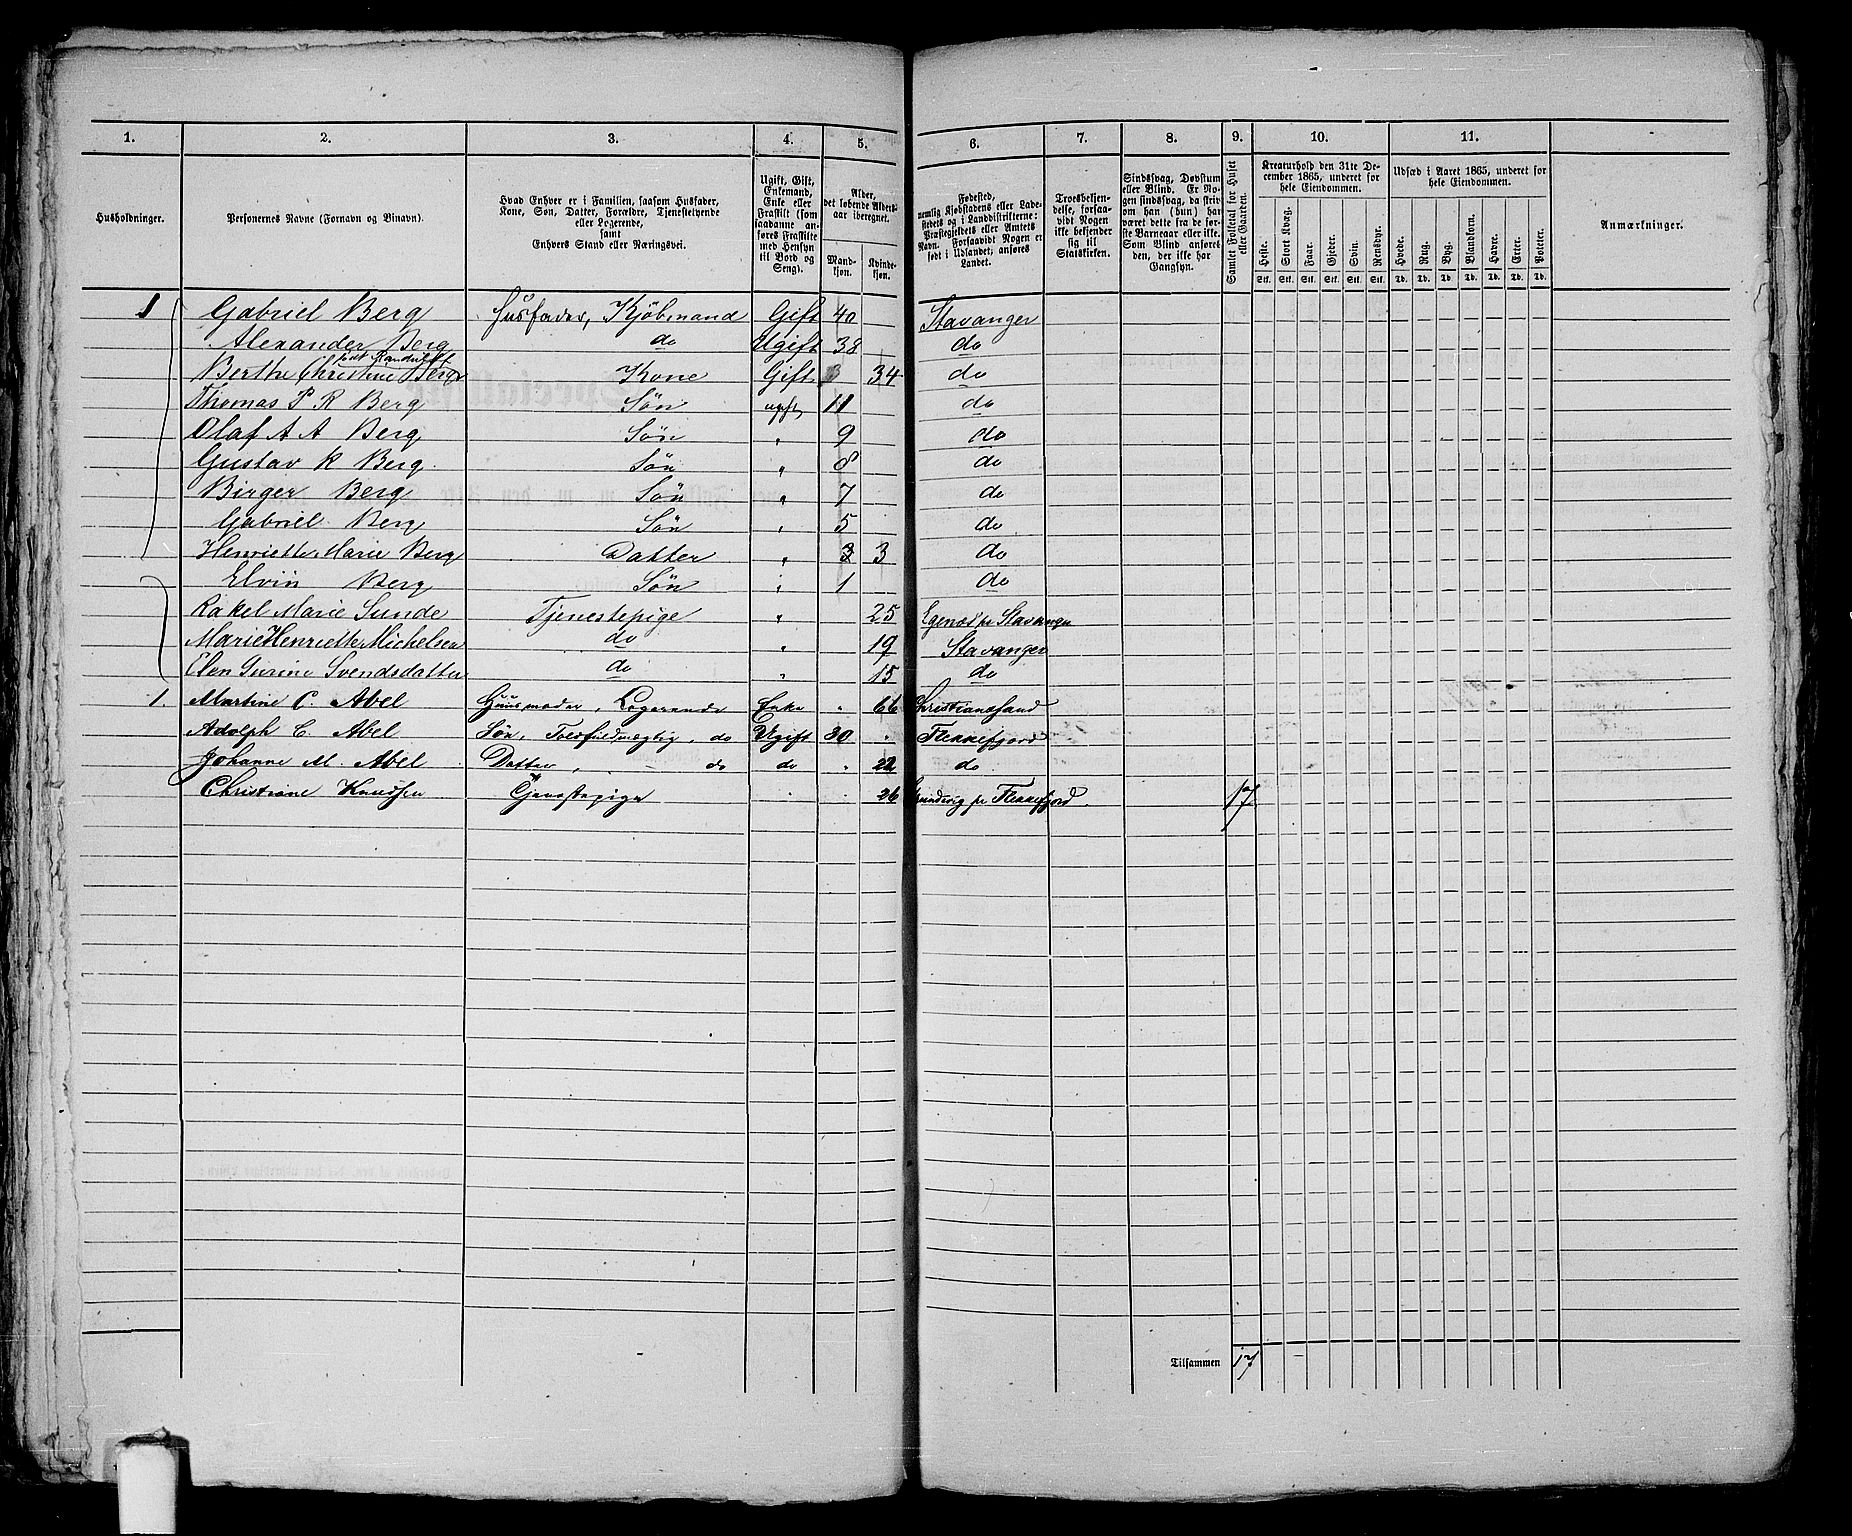 1. 2. 3. 4. 5. 6. 7. 8. 9. 10. 11.
Husholdninger.
Personernes Navne (Fornavn og Binavn).
Hvad Enhver er i Familien, saasom Husfader,
Kone, Søn, Datter, Forældre, Tjenestetyende
eller Logerende,
samt
Enhvers Stand eller Næringsvei.
Ugift, Gift,
Enkemand,
Enke eller
Fraskilt (som
saadanne an-
føres Fraskilte
med Hensyn
til Bord og
Seng).
Alder,
det løbende Alders-
aar iberegnet.
Mand-
kjøn.
Kvinde-
kjøn.
Fødested,
nemlig Kjøbstadens eller Lade-
stedets og i Landdistrikterne:
Præstegjeldets eller Amtets
Navn. Forsaavidt Nogen er
født i Udlandet, anføres
Landet.
Troesbekjen-
delse, forsaa-
vidt Nogen
ikke bekjender
sig til
Statskirken.
Sindssvag, Døvstum
eller Blind. Er No-
gen sindssvag, da skriv
om han (hun) har
været dette fra de før-
ste Barneaar eller ikke.
Som Blind anføres
den, der ikke har
Gangsyn.
Samlet Folketal for Huset
eller Gaarden.
Kreaturhold den 31te De-
cember 1865, underet for
hele Eiendommen.
Heste. Stort Kvæg. Faar. Gjeder. Svin. Rensdyr.
Stk. Stk. Stk. Stk. Stk. Stk.
Udsæd i Aaret 1865, underet for
hele Eiendommen.
Hvede. Rug. Byg. Blandkorn. Havre. Erter. Poteter.
Td. Td. Td. Td. Td. Td. Td.
Anmærkninger.
1 Gabriel Berg Husfader, Kjöbmand Gift 40 Stavanger
Alexander Berg do Ugift 38 do
født
Berthe Christine Berg Kone Gift 34 do
Thomas P R Berg Søn ugift 11 do
Olaf A A Berg Søn " 9 do
Gustav R Berg Søn " 8 do
Birger Berg Søn " 7 do
Gabriel Berg Søn " 5 do
Henriette Marie Berg Datter " 3 3 do
Elvin Berg Søn " 1 do
Rakel Marie Sunde Tjenestepige " 25 Egenæs pr Stavanger
Marie Henriette Michelsen do " 19 Stavanger
Elen Gurine Svendsdatter do " 15 do
1. Martine C. Abel Huusmoder, Logerende Enke " 66 Christiansand
Adolph C. Abel Søn, do Ugift 30 " Flekkefjord
Johanne M. Abel Datter, do do " 22 do
Christiane Knudsen Tjenestepige " " 26 pr Flekkefjord 17
Tilsammen 17